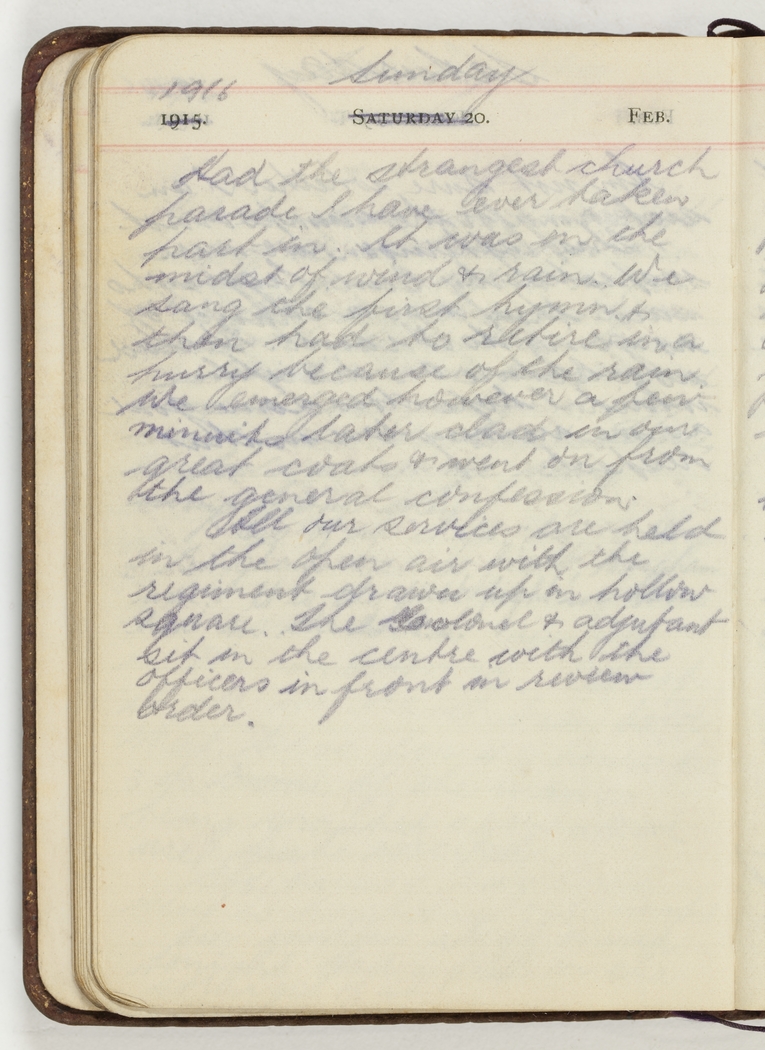 Sunday
1916
1915. SATURDAY 20. FEB.
Had the strangest church
parade I have ever taken
part in. It was in the
midst of wind & rain. We
sang the first hymn &
then had to retire in a
hurry because of the rain.
We emerged however a few
minuits later clad in our
great coats & went on from
the general confession.
All our services are held
in the open air with the
regiment drawn up in hollow
square. The Colonel & adjutant
sit in the centre with the
officers in front in review
order.